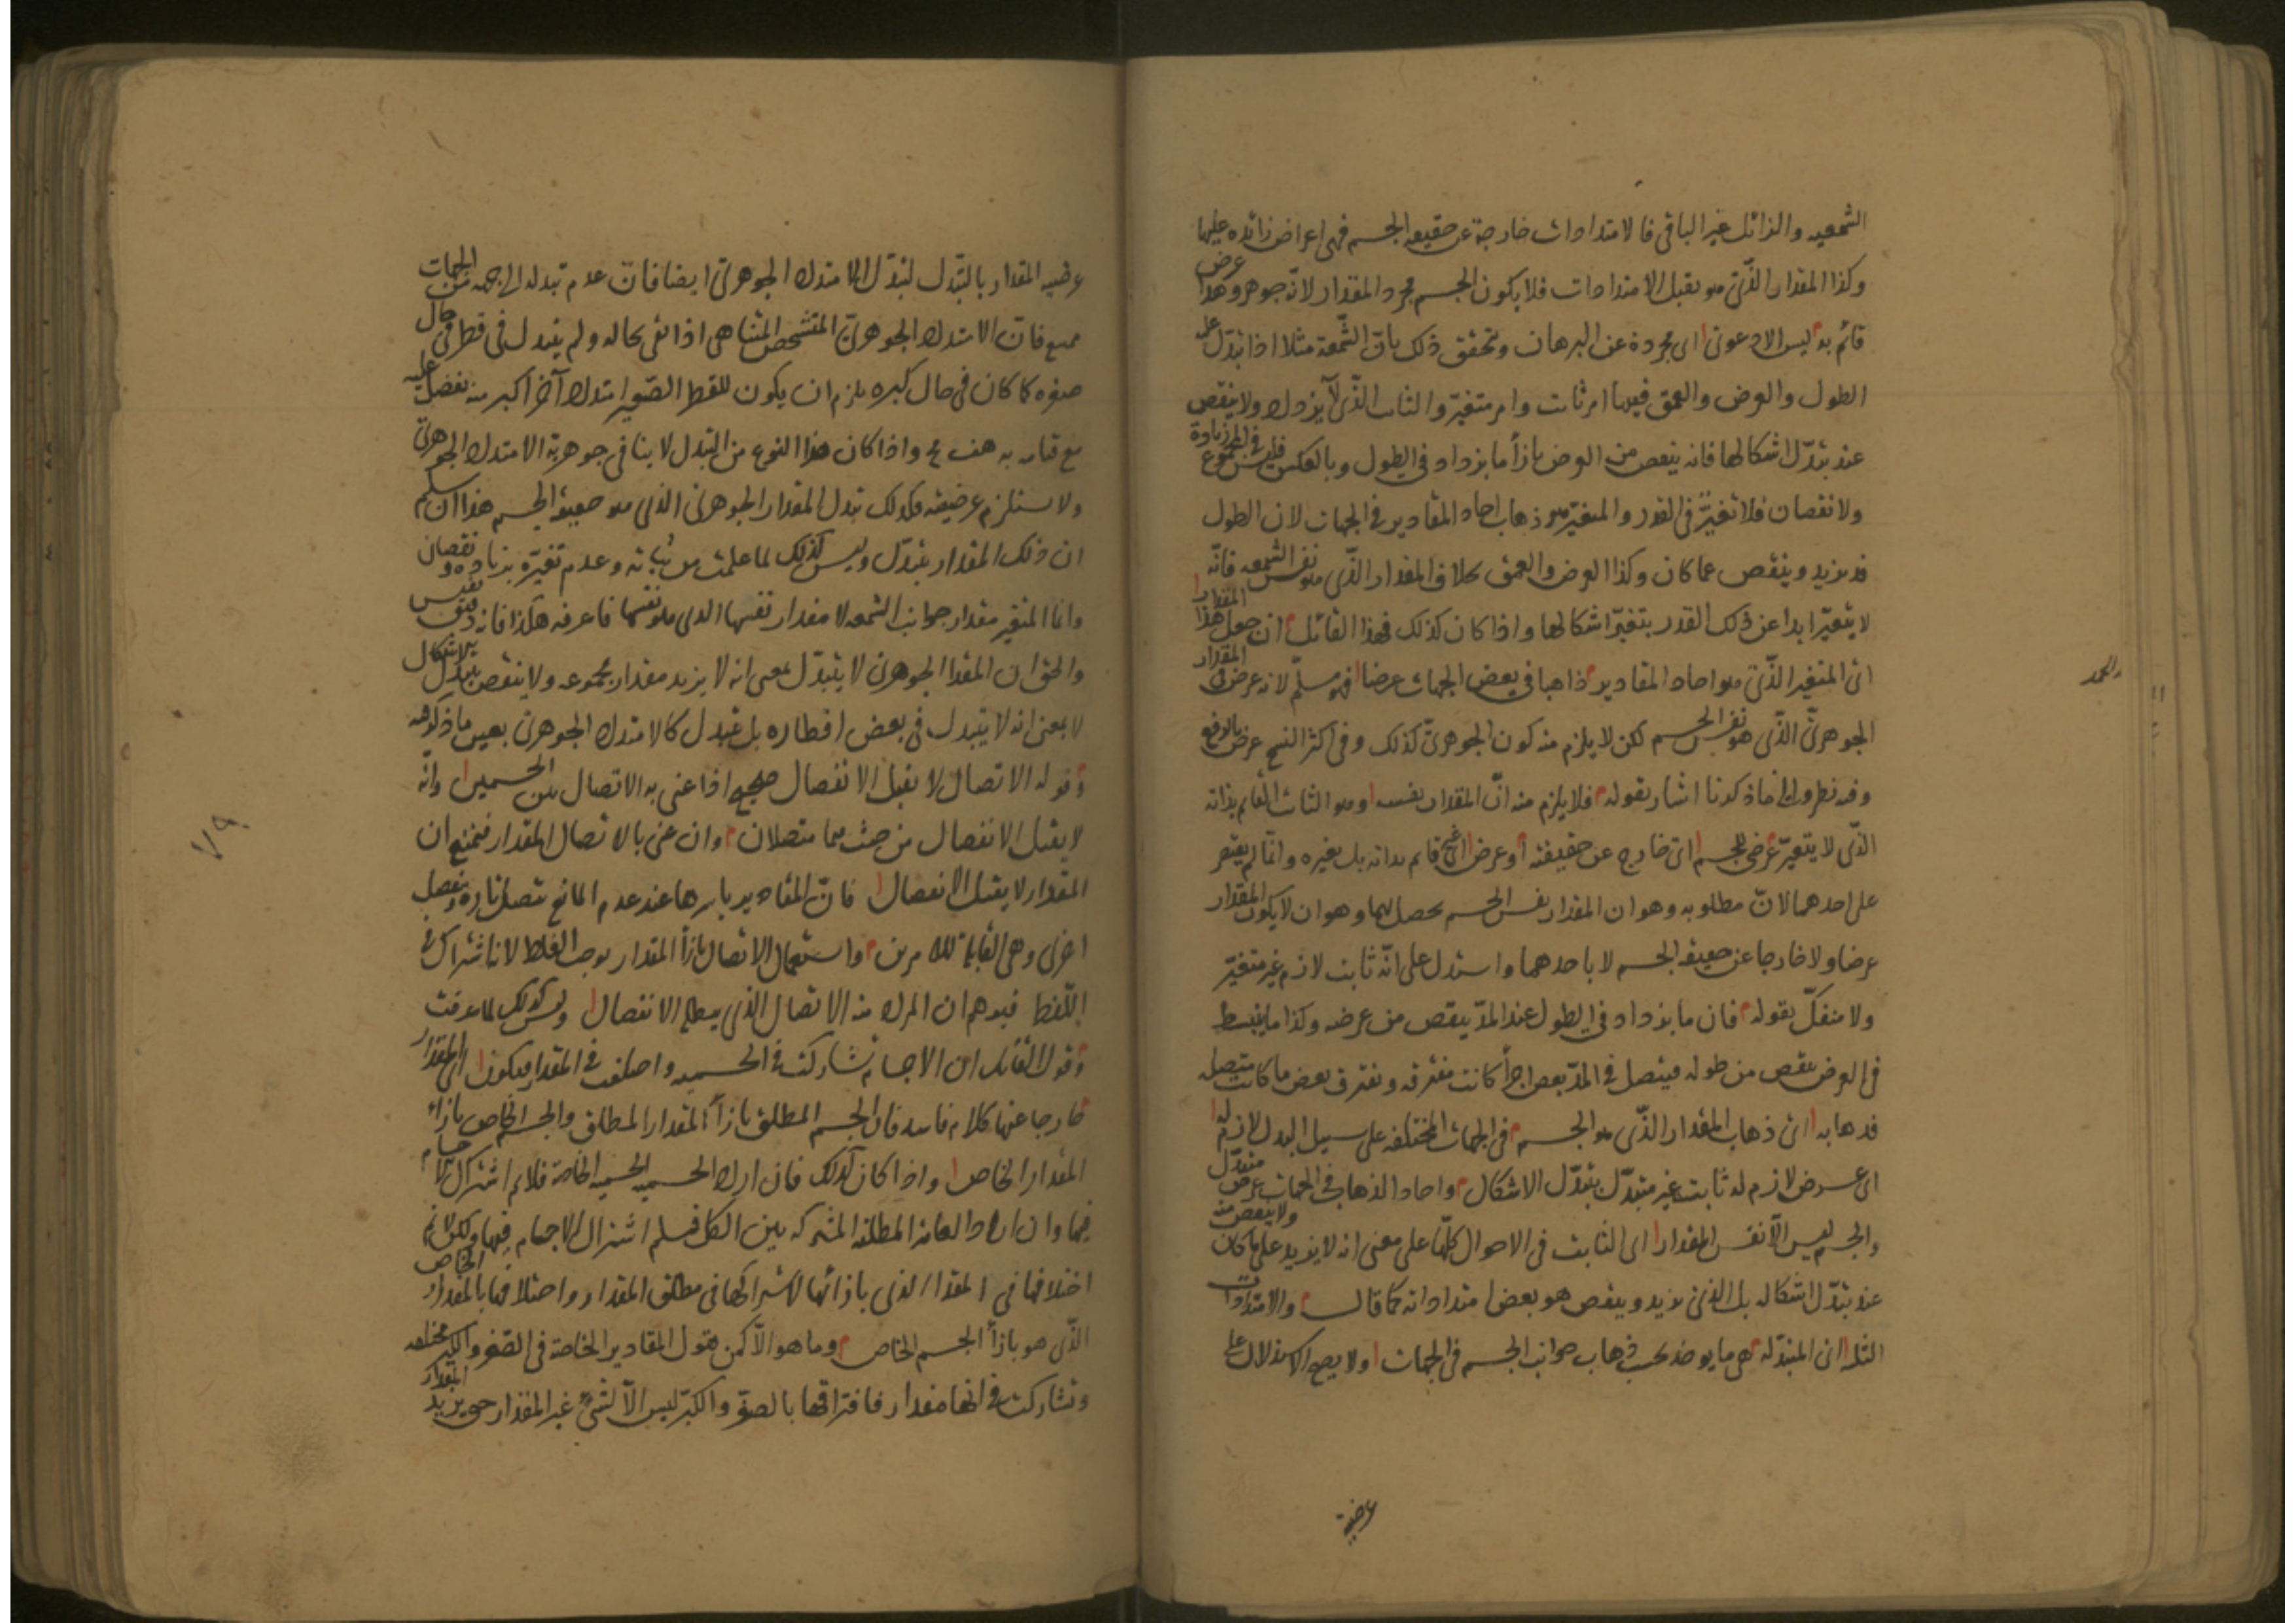 الشمعية والزائل غير الباقي فالامتدادات خارجة عن حقيقة الجسم فهى اعراض زائدة عليها
وكذا المقدار الذّى هو يقبل الامتدادات فلا يكون الجسم مجرد المقدار لانّه جوهر وهذا عرض
قائم به ليس الا دعوى اى مجردة عن البرهان وتحقق ذلك بانّ الشّمعة مثلا اذا تبدّل عليها
الطول والعرض والعمق فيها امر ثابت وامر متغيّر والثابت الذّى لا يزداد ولا ينقص
عند تبدّل اشكالها فانه ينقص من العرض بازأ ما يزداد فى الطول وبالعكس فليس فى المجموع زيادة
ولا نقصان فلا تغيّر فى القدر والمتغيّر هو ذهاب احاد المقادير فى الجهات لان الطول
قد يزيد وينقص عما كان وكذا العرض والعمق بخلاف المقدار الذّى هو نفس الشمعه فانّه
لا يتغيّر ابدا عن ذلك القدر بتغيّر اشكالها واذا كان كذلك فهذا القائل ان جعل هذا المقدار
اى المتغير الذّى هو احاد المقادير ذاهبا فى بعض الجهات عرضا فهو مسلّم لانه عرض فى المقدار
الجوهرىّ الذّى هو نفس الجسم لكن لا يلزم منه كون الجوهرىّ كذلك وفى اكثر النسخ عرض بالرفع
وفيه نظر والى ما ذكرنا اشار بقوله فلا يلزم منه انّ المقدار نفسه وهو الثابت القائم بذاته
الذّى لا يتغيّر عرضى للجسم اى خارج عن حقيقته او عرض اى غير قائم بذاته بل بغيره وانّما لم يقتصر
على احدهما لانّ مطلوبه وهو ان المقدار نفس الجسم يحصل بهما وهو ان لا يكون المقدار
عرضا ولا خارجا عن حقيقة الجسم لا باحدهما واستدل على انّه ثابت لازم غير متغيّر
ولا منفكّ بقوله فان ما يزداد فى الطول عند المدّ ينقص من عرضه وكذا ما ينبسط
فى العرض ينقص من طوله فيتصل فى المدّ بعض اجزأ كانت مفترقه ويفترق بعض ما كانت متصله
فذهابه اى ذهاب المقدار الذّى هو الجسم فى الجهات المختلفه على سبيل البدل لازم له
اى عرض لازم له ثابت غير متبدّل بتبدّل الاشكال واحاد الذهاب فى الجهات عرض متبدّل
والجسم ليس الّا نفس المقدار اى الثابت فى الاحوال كلّها على معنى انه لا يزيد على ما كان ولا ينقص منه
عند تبدّل اشكاله بل الذى يزيد وينقص هو بعض امتداداته كما قال والامتدادات
الثلثه اى المتبدّله هى ما يوخذ بحسب ذهاب جوانب الجسم فى الجهات ولا يصح الاستدلال على
عرضية
عرضيه المقدار بالتبّدل لتبدّل الامتداد الجوهرىّ ايضا فان عدم تبدله الى جهه من الجهات
ممنوع فانّ الامتداد الجوهرىّ المتشخص المتناهى اذا بقى بحاله ولم يتبدل فى قطر فى حال
صغره كما كان فى حال كبره يلزم ان يكون للقطر الصّغير امتداد آخر اكبر منه يفضل عليه
مع قيامه به هف مح واذا كان هذا النوع من التبدل لا ينافى جوهرية الامتداد الجوهرىّ
ولا يستلزم عرضيته فكذلك تبدل المقدار الجوهرىّ الذى هو حقيقة الجسم هذا ان سلم
ان ذلك المقدار يتبدّل وليس كذلك لما علمت من ثباته وعدم تغيّره بزيادة ونقصان
وانّما المتغير مقدار جوانب الشمعه لا مقدار نفسها الذى هو نفسها فاعرفه هكذا فانه دقيق نفيس
والحق ان المقدار الجوهرىّ لا يتبدّل بمعنى انه لا يزيد مقدار مجموعه ولا ينقص بتبدّل الاشكال
لا بمعنى انه لا يتبدل فى بعض اقطاره بل يتبدل كالامتداد الجوهرىّ بعين ما ذكرتموه
وقوله الاتصال لا يقبل الانفصال صحيح اذا عنى به الاتصال بين الجسمين وانّه
لا يقبل الانفصال من حيث هما متصلان وان عنى بالاتصال المقدار فيمنع ان
المقدار لا يقبل الانفصال فانّ المقادير باسرها عند عدم المانع تتصل تارة وتنفصل
اخرى وهى القابلة للامرين واستعمال الاتصال بازأ المقدار يوجب الغلط لانه اشتراك فى
اللّفظ فيوهم ان المراد منه الاتصال الذى يبطله الانفصال وليس كذلك لما عرفت
وقول القائل ان الاجسام تشاركت فى الجسمية واختلفت فى المقدار فيكون اى المقدار
خارجا عنها كلام فاسد فان الجسم المطلق بازأ المقدار المطلق والجسم الخاص بازاء
المقدار الخاص واذا كان كذلك فان اراد بالجسميه الجسميه الخاصة فلا نم اشتراك الاجسام
فيها وان اراد العامة المطلقة المشتركه بين الكل فسلم اشتراك الاجسام فيها ولكن لا نم
اختلافها فى المقدار الذى بازائها لاشتراكها فى مطلق المقدار واختلافها بالمقدار الخاص
الذّى هو بازأ الجسم الخاص وما هو الّا كمن يقول المقادير الخاصة فى الصّغر والكبر مختلفه
وتشاركت فى انها مقدار فافتراقها بالصغر والكبر ليس الّا لشئ غير المقدار حتى يزيد المقدار
٧٩